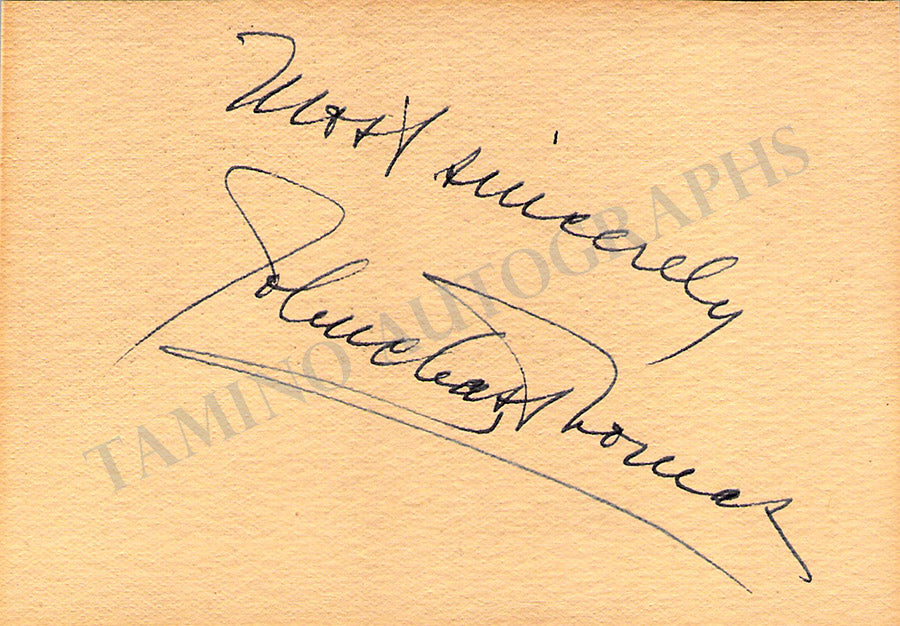 Most sincerely
John Chas Thomas
TAMINO AUTOGRAPHS